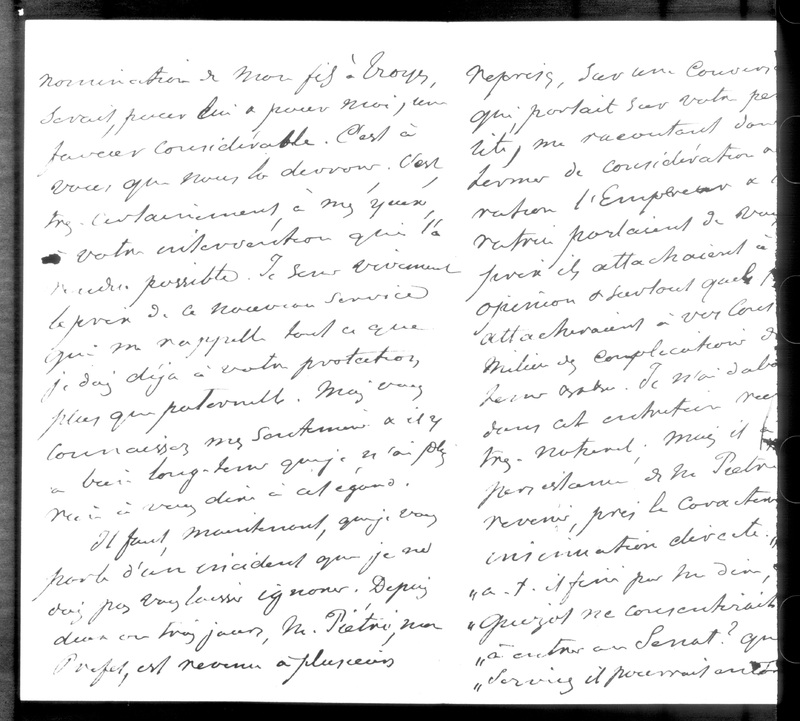 nomination de mon fils à Troyes,
serait, pour lui & pour moi, une
faveur considérable. C'est à
vous que nous la devrons. C'est
très-certainement, à mes yeux,
à votre intervention qui l'a
rendue possible. Je sens vivement
le prix de ce nouveau service
qui me rappelle tout ce que
je dois déjà à votre protection
plus que paternelle. Mais vous
connaissez mes sentimens & il y
a bien long-tems que je n'ai plus
rien à vous dire à cet égard.
Il faut, maintenant, que je vous
parle d'un incident que je ne
dois pas vous laisser ignorer. Depuis
deux ou trois jours, M. Piétri, mon
Préfet, est revenu à plusieurs
reprises, sur une convers
qui portait sur votre per
lité, me racontant dans
termes de considération
ration l'Empereur &
parlaient de vous
prix ils attachaient à
opinion & surtout quel
attacheraient à vos cons
milieu des complications
Je n'ai d'abo
dans cet entretien
très-naturel, mais il
persistance de M. Piétri
revenir, pris le caractère
insinuation directe. "
"a-t-il fini par me dire,
"Guizot ne consentirait
"à entrer au Sénat? qu
"services il pourrait